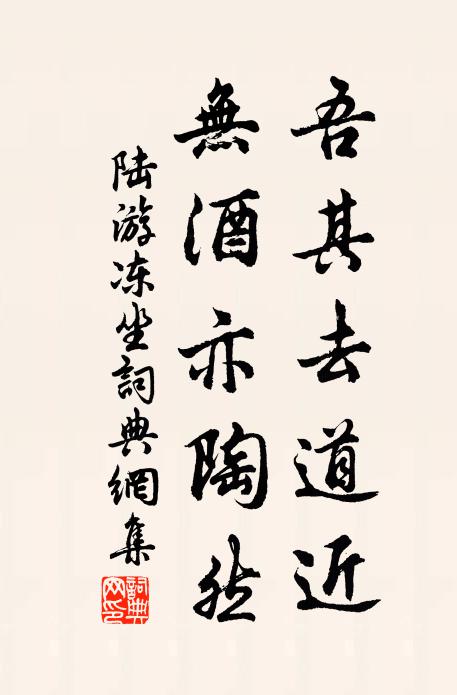 吾其去道近
無酒亦陶然
陆游冻坐詞典網集
詞典
网印